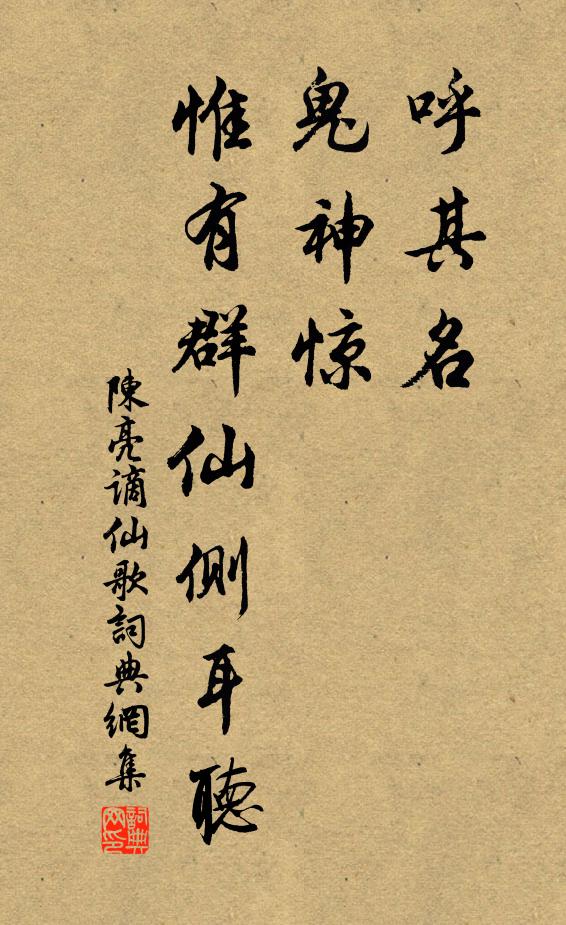 呼其名
鬼神惊
惟有群仙侧耳聽
陳亮謫仙歌詞典網集
詞典
网印